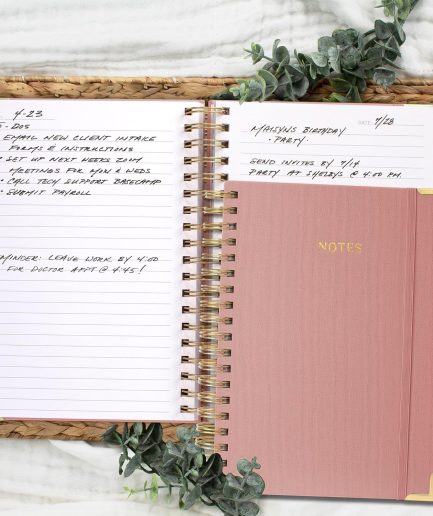 4-23
S-DOS
EMAIL NEW CLIENT INTAKE
FORMS & INSTRUCTIONS
• SET UP NEXT WEEKS ZOOM
MEETINGS FOR MON & WEDS
• CALL TECH SUPPORT BASECAMP
• SUBMIT PAYROLL
MINDER: LEAVE WORK BY 4:00
FOR DOCTOR APPT @ 4:45!
DATE: 7/28
MAISYNS BIRTHDAY
• PARTY •
SEND INVITES BY 7/14
PARTY AT SHELBYS @ 4:00 PM
NOTES